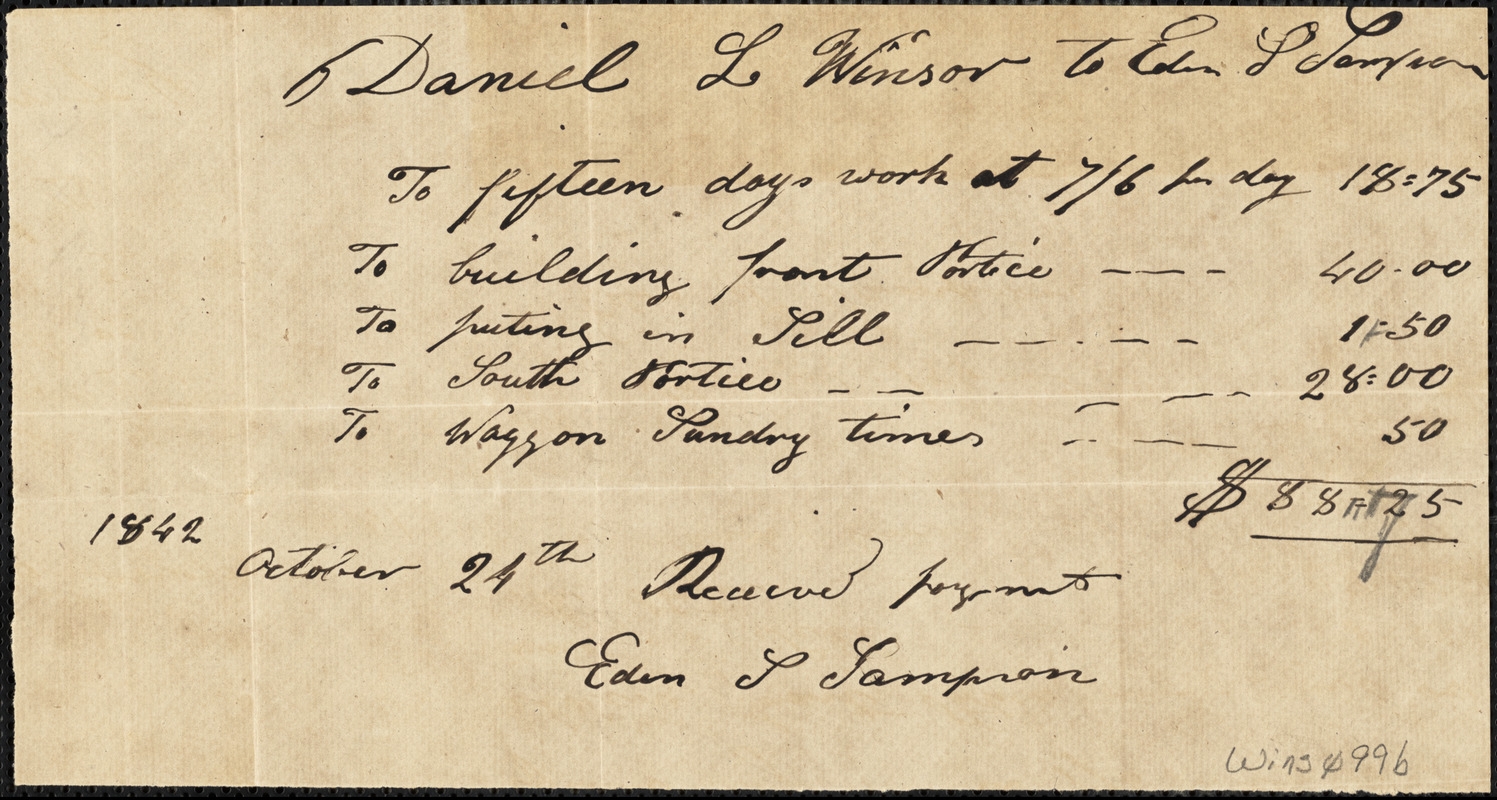 Daniel L Winsor to Eden S Sampson
To fifteen days work at 7/6 per day 18=75
To building front Portico ---- 40-00
To puting in Sill ----- 1=50
To South Portico ----- 28=00
To Waggon Sundry times ---- 50
$ 88=25
1842
October 24th Received payment
Eden S Sampson
Wins 0996